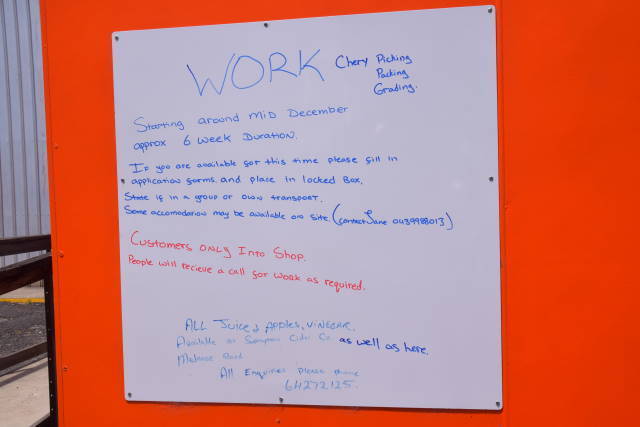 WORK Chery Picking
Packing
Grading.
Starting around mid December
approx 6 week Duration.
If you are available for this time please fill in
application forms and place in locked Box.
State if in a group or own transport.
Some accomodation may be available on site. (contact Jane 0439988013)
Customers only Into Shop.
People will recieve a call for work as required.
All Juices, Apples, Vinegar.
Available at Cider Co as well as here.
Road
All Enquiries please phone
64272125.